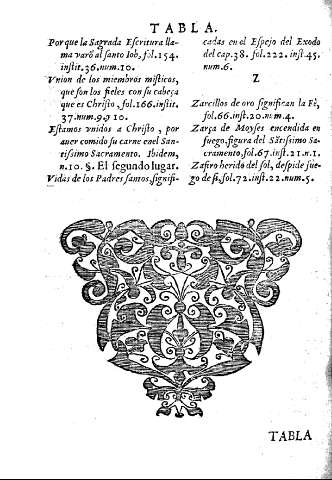 TABLA.
Por que la Sagrada Escritura lla-
ma varõ al santo Iob, fol. 154.
instit. 36. num. 10.
Vnion de los miembros misticos,
que son los fieles con su cabeça
que es Christo, fol. 166. instit.
37. num. 9. y 10.
Estamos vnidos a Christo, por
auer comido su carne en el San-
tissimo Sacramento. Ibidem,
n. 10. §. El segundo lugar.
Vidas de los Padres santos, signifi-
cadas en el Espejo del Exodo
del cap. 38. fol. 222. inst. 45.
num. 6.
Z
Zarcillos de oro significan la Fè,
fol. 66. inst. 20. num. 4.
Zarça de Moyses encendida en
fuego, figura del Sãtissimo Sa-
cramento, fol. 67. inst. 21. n. 1.
Zafiro herido del sol, despide fue-
go de si, fol. 72. inst. 22. num. 5.
TABLA